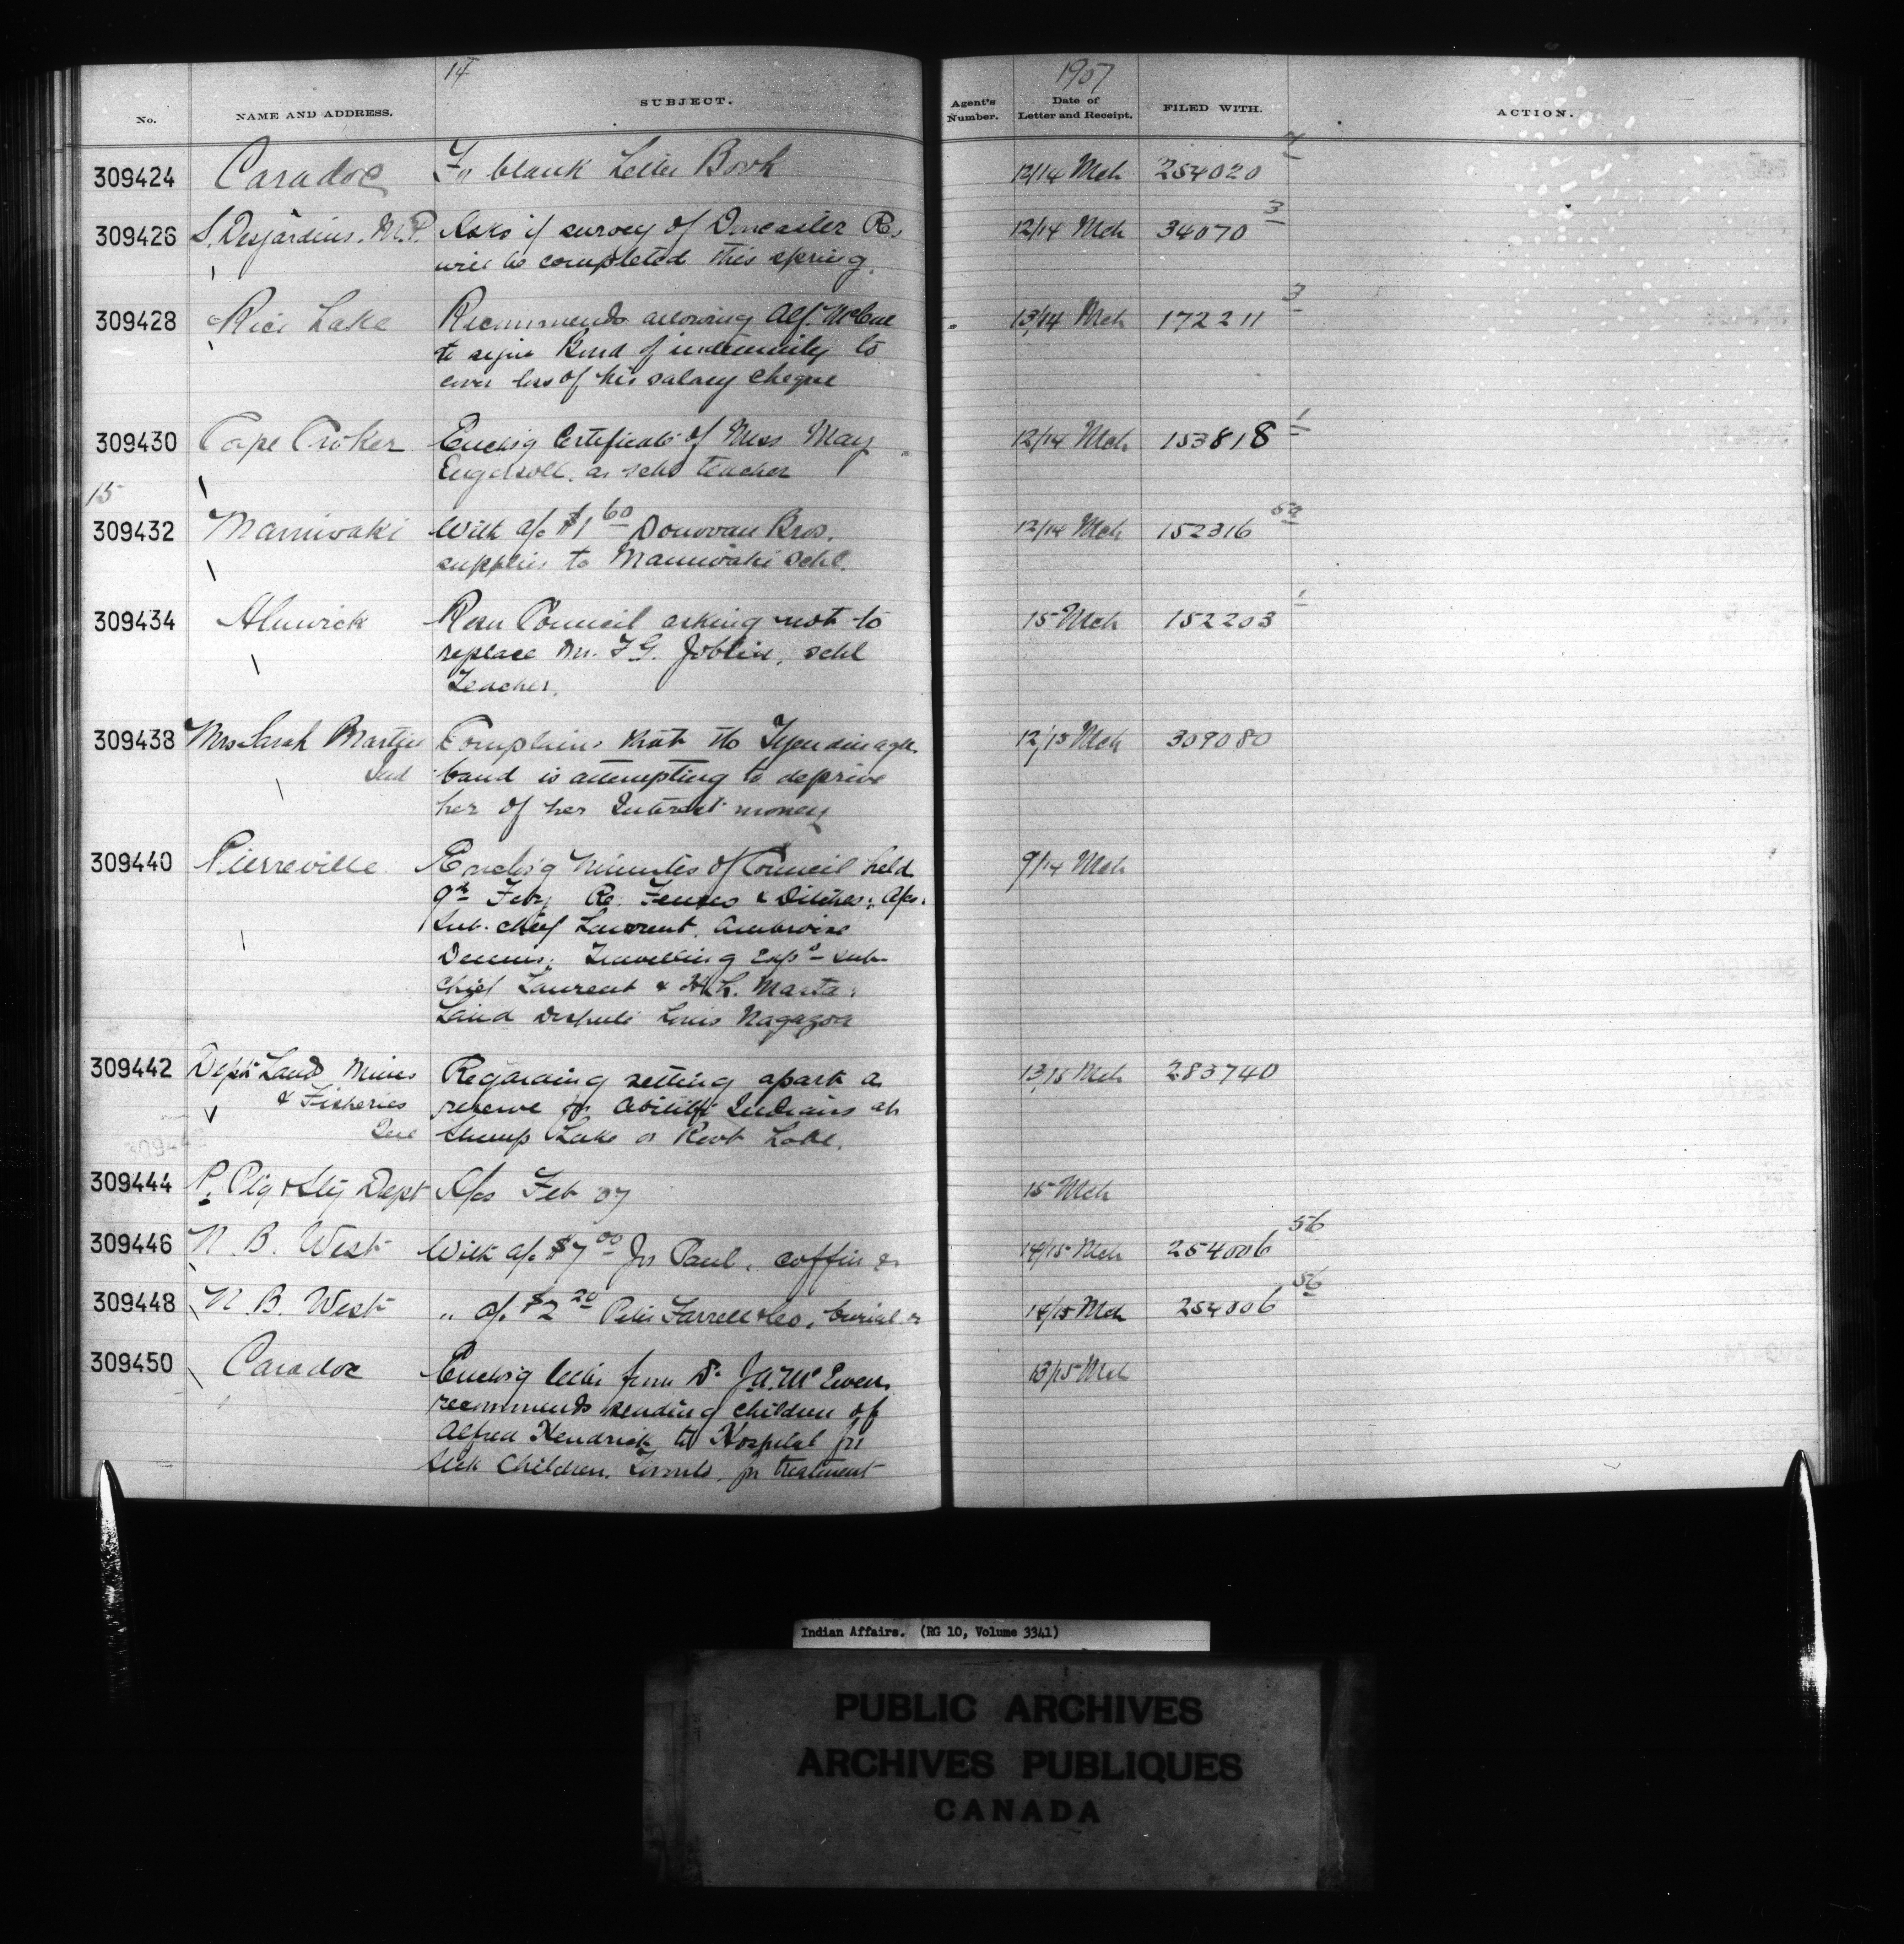 14
1907
No. NAME AND ADDRESS. SUBJECT. Agent's Number. Date of Letter and Receipt. FILED WITH. ACTION.
309424 Caradoc For blank Letter Book 12/14 Mch 254020
309426 S. Desjardins. M.P. Asks if survey of Doncaster Res 12/14 Mch 34070 3
will be completed this spring.
309428 Rice Lake Recommends allowing Alf. McCue 13/14 Mch 172211 3
to sign Bond of indemnity to
cover loss of his salary cheque
309430 Cape Croker Enclos'g Certificate of Miss May 12/14 Mch 153818 1
Engersoll. as schl teacher
15
309432 Maniwaki With a/c $1 60 Donovan Bros. 12/14 Mch 152316
supplies to Maniwaki schl.
309434 Alnwick Resn Council asking not to 15 Mch 152203 1
replace Mr. F.G. Joblin, schl
Teacher.
309438 Mrs Sarah Martin Complains that the Tyendinaga 12/15 Mch 309080
Ind band is attempting to deprive
her of her Interest money
309440 Pierreville Enclos'g Minutes of Council held 9/14 Mch
9th Feby Re: Fences & Ditches; A/cs:
Sub. chief Laurent, Ambroise
Dennis; Travelling Exps Sub-
Chief Laurent & H.L. Masta:
Land dispute Louis Nagazoa
309442 Dept Land Mines Regarding setting apart a 13/15 Mch 283740
& Fisheries reserve for Abitibi Indians at
Que Lake or Lake.
309444 P. Ptg & Sty Dept A/cs Feb 07 15 Mch
309446 N. B. West With a/c $7 00 Jos Paul, coffin &c 14/15 Mch 254006 56
309448 N. B. West " a/c $2 20 Peter Farrell & Co, burial &c 14/15 Mch 254006 56
309450 Caradoc Enclos'g letter from Dr J.A. McEwen 13/15 Mch
recommends sending children of
Alfred Kendrick to Hospital for
Sick Children. Toronto. for treatment
Indian Affairs. (RG 10, Volume 3341)
PUBLIC ARCHIVES
ARCHIVES PUBLIQUES
CANADA